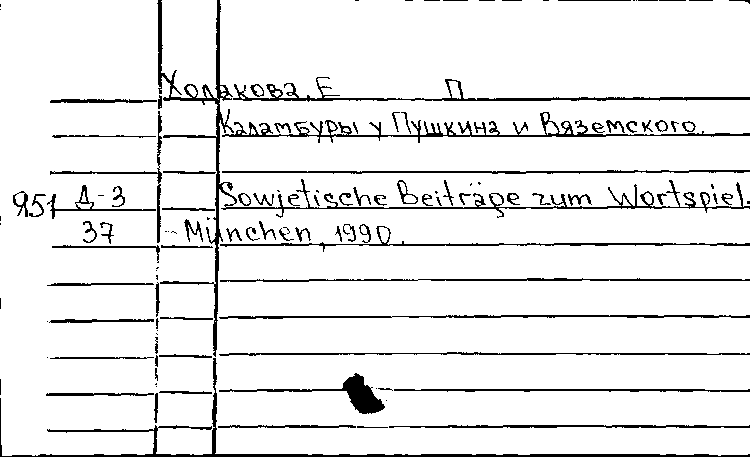 Ходакова, Е П
Каламбуры у Пушкина и Вяземского.
Я51 Д-3 Sowjetische Beiträge zum Wortspiel.
37 - München, 1990.